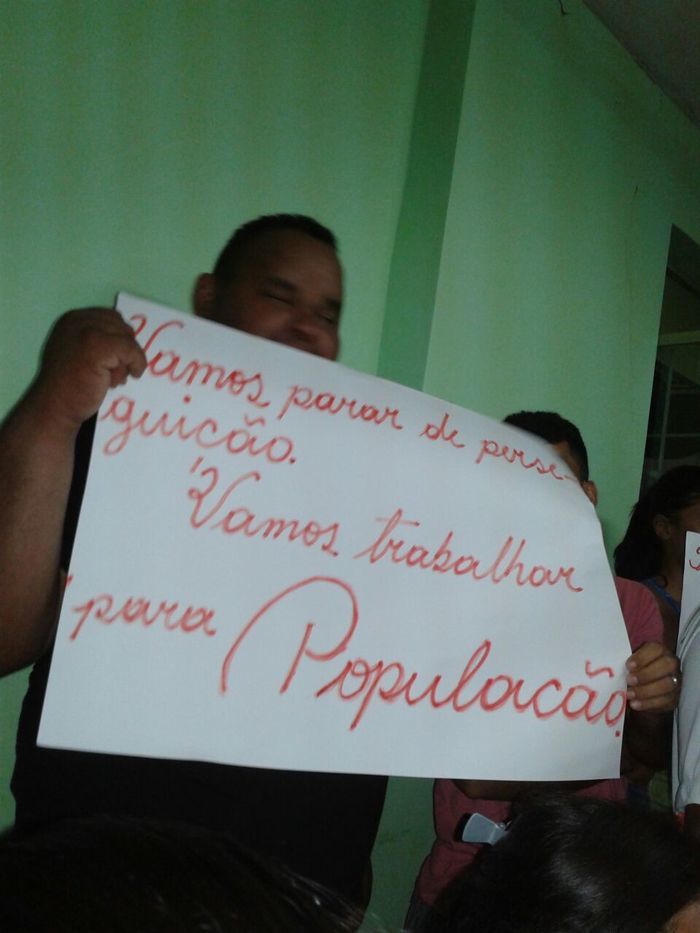 Vamos parar de perse-
guicão.
Vamos trabalhar
para Populacão.